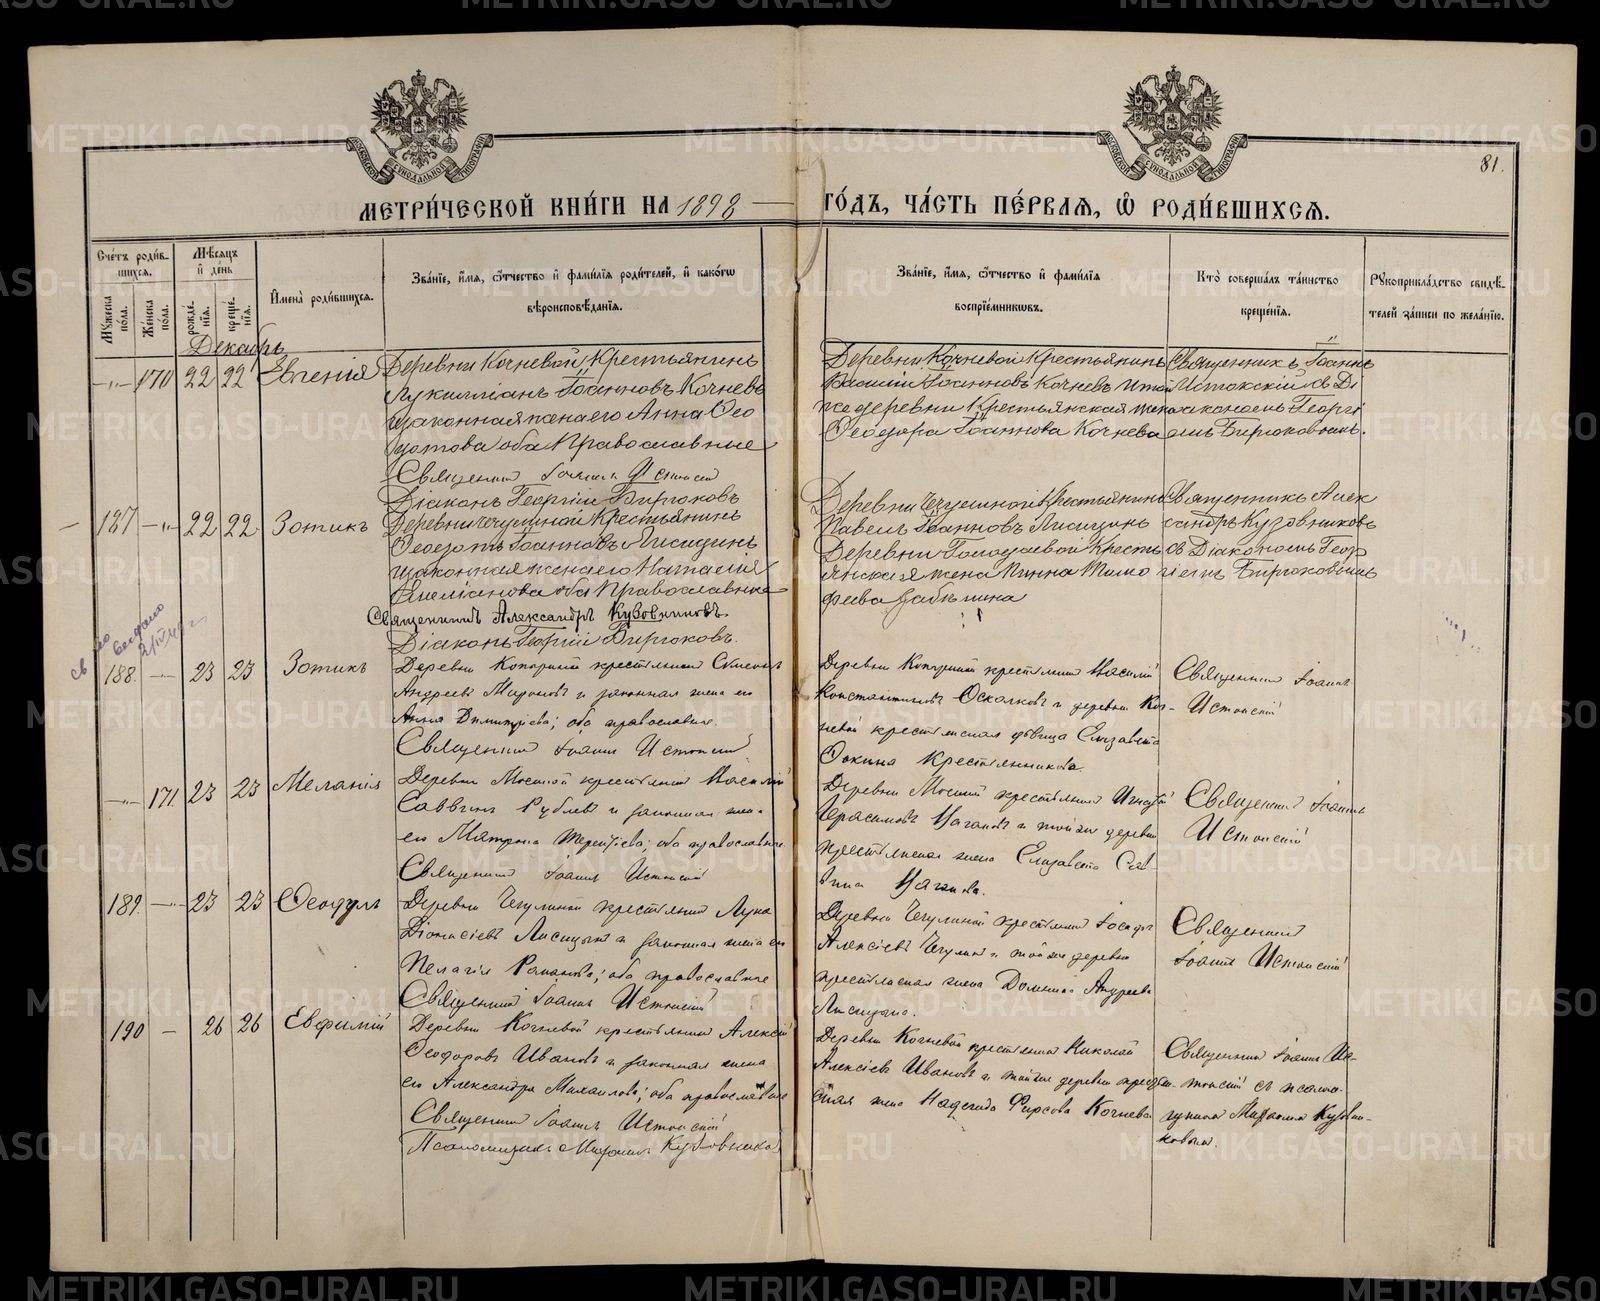 81.
МЕТРИ́ЧЕСКОЙ КНИ́ГИ НА 1898 ГО́ДЪ, ЧА́СТЬ ПЕ́РВАЯ, Ѡ҆ РОДИ́ВШИХСѦ.
Сче́тъ роди́в-
шихсѧ.
Мꙋ́жеска по́ла.
Же́нска по́ла.
Мѣ́сѧцъ и҆ де́нь
рожде́нїѧ.
креще́нїѧ.
И҆мена̀ роди́вшихсѧ.
Зва́нїе, и҆́мѧ, ѻ҆́тчество и҆ фами́лїѧ роди́телей, и҆ како́гѡ
вѣроисповѣ́данїѧ.
Зва́нїе, и҆́мѧ, ѻ҆́тчество и҆ фами́лїѧ
воспрїе́мникѡвъ.
Кто̀ соверша́лъ та́инство
креще́нїѧ.
Рꙋкоприкла́дство свидѣ́-
телей за́писи по жела́нїю.
Декабрь
170 22 22 Евгенія
Деревни Кочневой Крестьянинъ
Лукилліанъ Іоанновъ Кочневъ
и законная жена его Анна Ѳео
дотова оба Православные
Священникъ Іоаннъ Истокскій
Діаконъ Георгій Бирюковъ
Деревни Кочневой Крестьянинъ
Василій Іоанновъ Кочневъ и той
же деревни Крестьянская жена
Ѳеодора Іоаннова Кочнева
Священникъ Іоаннъ
Истокскій съ Ді
акономъ Георгі
емъ Бирюковымъ.
187 22 22 Зотикъ
Деревни Чечулиной Крестьянинъ
Ѳеодотъ Іоанновъ Лисицинъ
и законная жена его Наталія
Емеліанова оба Православные
Священникъ Александръ Кузовниковъ.
Діаконъ Георгій Бирюковъ.
Деревни Чечулиной Крестьянинъ
Павелъ Іоанновъ Лисицинъ
Деревни Голодаевой Кресть
янская жена Пинна Тимо
феева
Священникъ Алек
сандръ Кузовниковъ
съ Діакономъ Геор
гіемъ Бирюковымъ
188 23 23 Зотикъ
Деревни крестьянинъ Симеонъ
Андреевъ Мироновъ и законная жена его
Анна Димитріева; оба православные.
Священникъ Іоаннъ Истокскій
Деревни крестьянинъ Василій
Константиновъ Осколковъ и деревни Коч-
невой крестьянская дѣвица Елизавета
Ѳокина Крестьянникова.
Священникъ Іоаннъ
Истокскій
171 23 23 Меланія
Деревни Мостовой крестьянинъ Василій
Саввинъ Рублевъ и законная жена
его Матрона Терентіева; оба православные
Священникъ Іоаннъ Истокскій
Деревни Мостовой крестьянинъ Игнатій
Герасимовъ Ваганов и той же деревни
крестьянская жена Елизавета Сав-
вина Ваганова.
Священникъ Іоаннъ
Истокскій
189 23 23 Ѳеодулъ
Деревни Чечулиной крестьянинъ Лука
Діонисіевъ Лисицынъ и законная жена его
Пелагія Романова; оба православные
Священникъ Іоаннъ Истокскій
Деревни Чечулиной крестьянинъ
Алексіевъ Чечулинъ и той же деревни
крестьянская жена Домника Андреева
Лисицына.
Священникъ
Іоаннъ Истокскій
190 26 26 Евфимій
Деревни Кочневой крестьянинъ Алексій
Ѳеодоровъ Ивановъ и законная жена
его Александра Михаилова; оба православные
Священникъ Іоаннъ Истокскій
Псаломщикъ Михаилъ Кузовниковъ
Деревни Кочневой крестьянинъ Николай
Алексіевъ Ивановъ и той же деревни крестьян-
ская жена Надежда Фирсова Кочнева
Священникъ Іоаннъ Ис-
токскій съ псалом-
щикомъ Михаиломъ Кузовни-
ковымъ.
METRIKI.GASO-URAL.RU